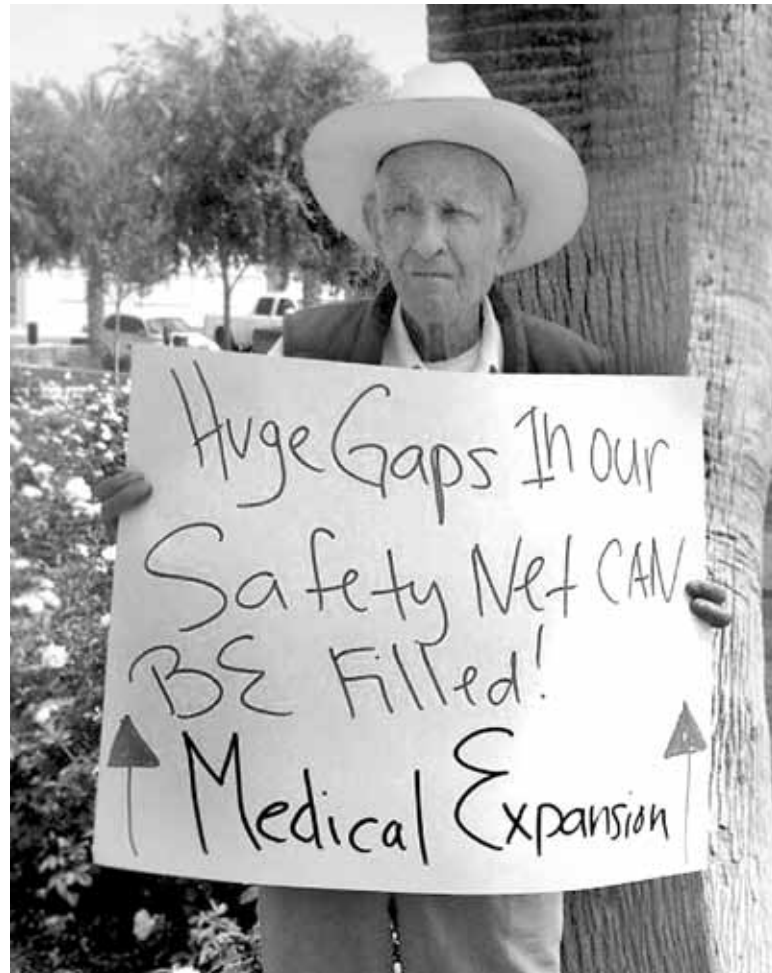 Huge Gaps In our
Safety Net CAN
BE Filled!
Medical Expansion